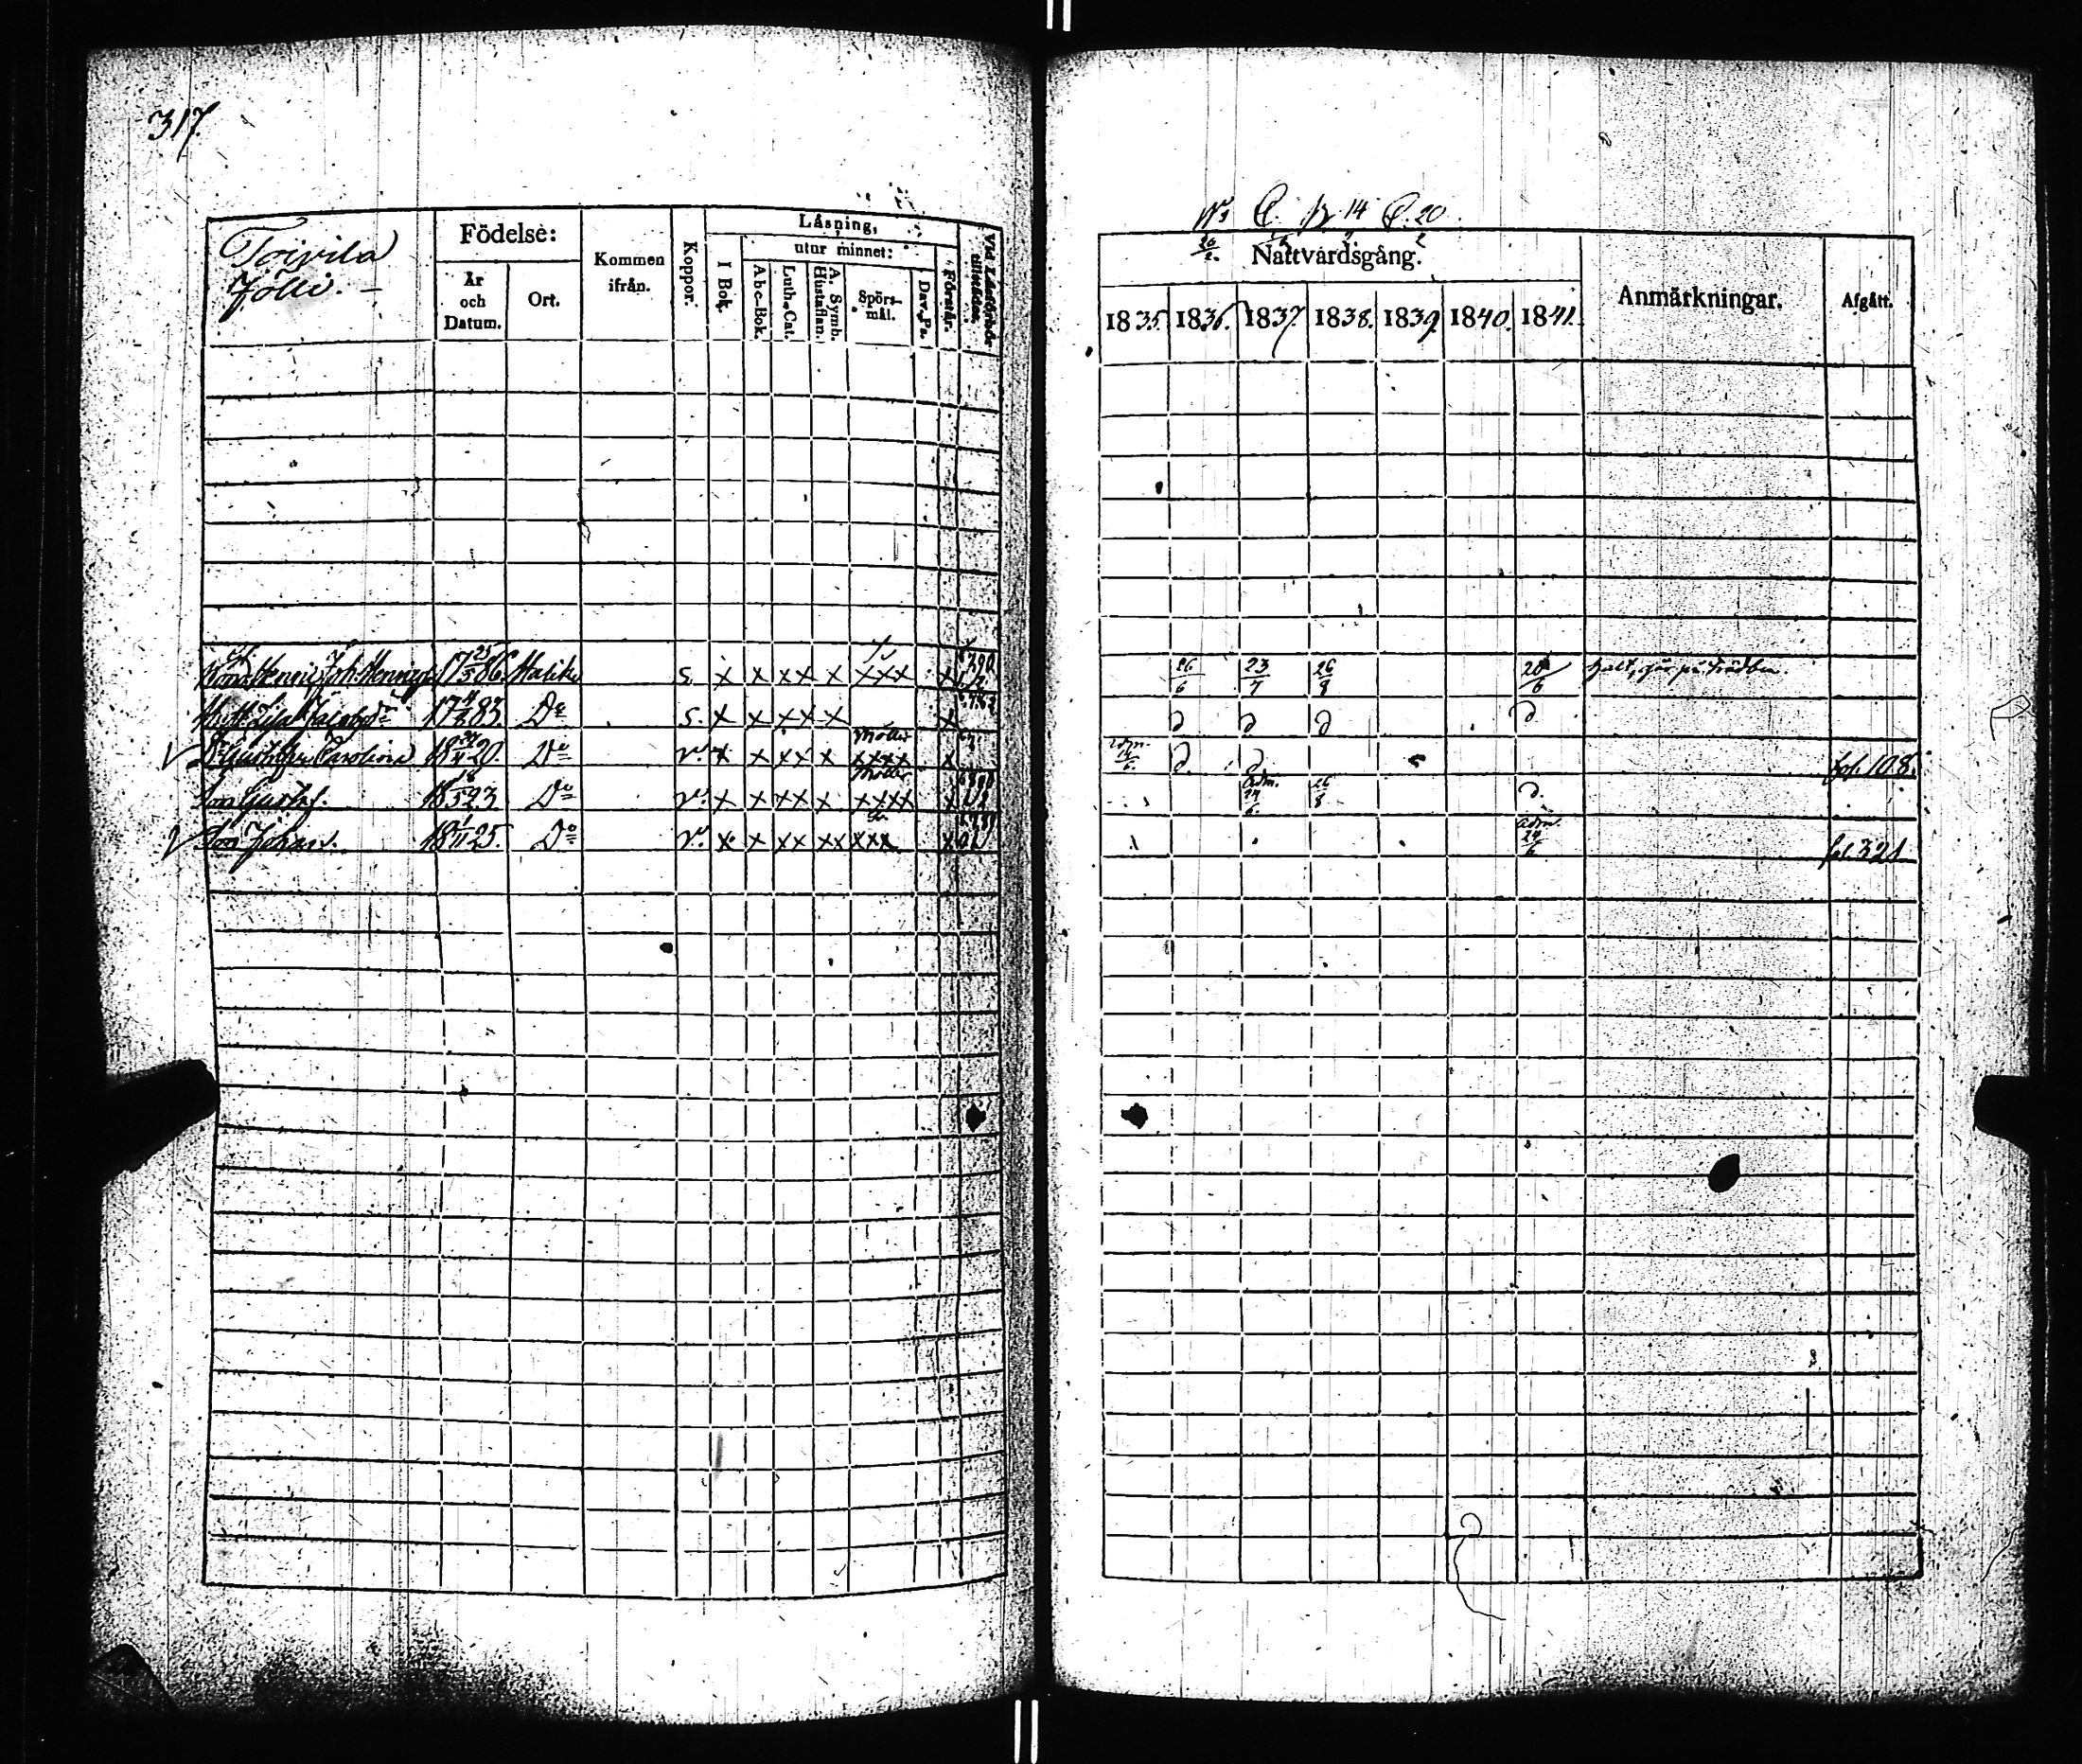 317.
Toivila
Jölli. –
Födelse:
År och Datum.
Ort.
Kommen ifrån.
Koppor.
Läsning,
I Bok.
utur minnet:
Abc-Bok.
Luth. Cat.
A. Symb. Hustaflan.
Spörs-mål.
Dav. Ps.
Förstår.
Vid Läsförhör tillstädes.
Joh. Henrics 17 25/5 86. Halikko s. x x xx x xxx x
Hust. Lisa Jacobsdr 17 83 Do s. x x xx x x
Dr Carolina 18 20. Do v. x x xx x xxxx x
Son Gustaf. 18 18/5 23 Do v. x x xx x xxxx x
Son Johan. 18 1/11 25. Do v. x x xx xx xxx x
14 20.
Nattvardsgång.
1835. 1836. 1837. 1838. 1839. 1840. 1841.
Anmärkningar.
Afgått.
26/6 23/7 26/8 20/6 halt, går på trädben.
d d d d
adm. d. d. fol. 108.
adm. 24/6. 26/8 d.
adm. 24/6 fol. 321